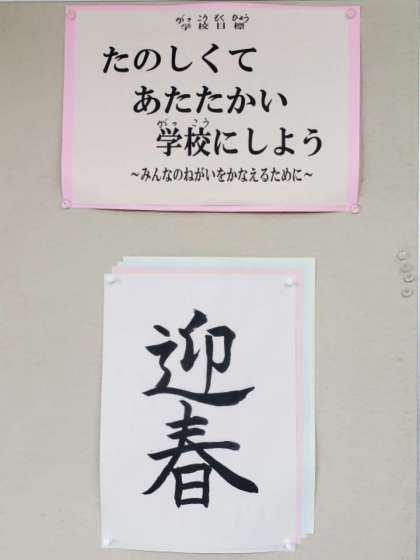 がっこうもくひょう
学校目標
たのしくて
あたたかい
がっこう
学校にしよう
～みんなのねがいをかなえるために～
迎春